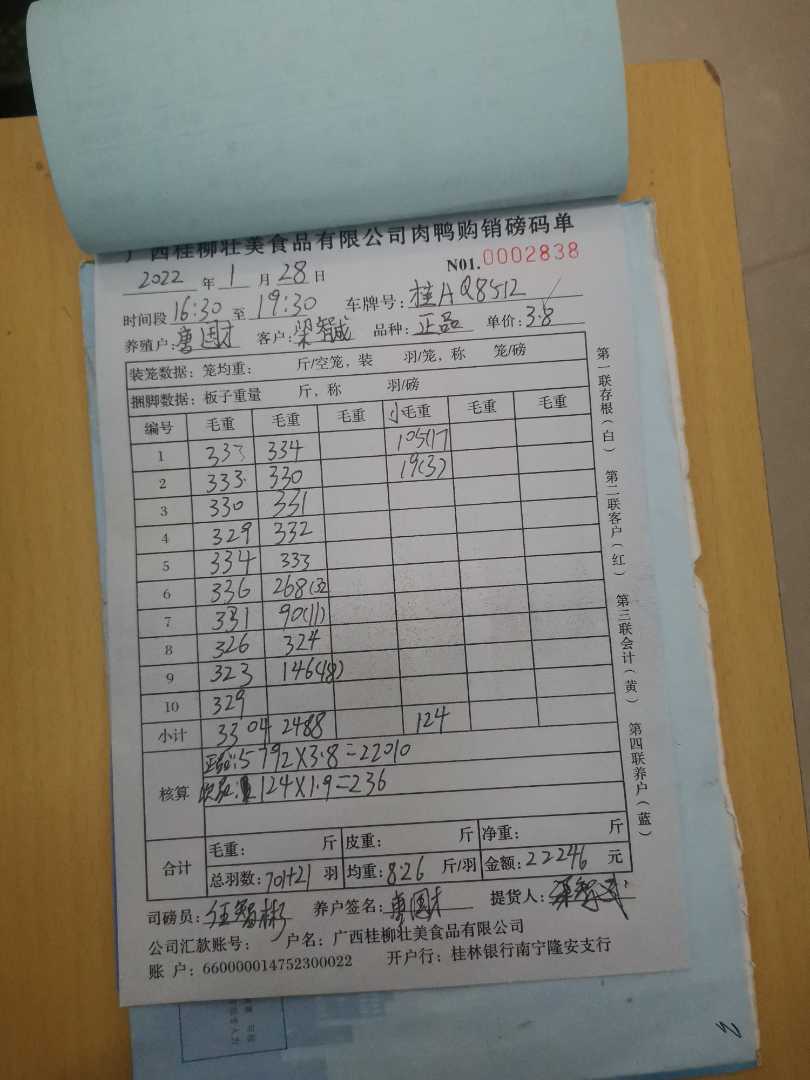 广西桂柳壮美食品有限公司肉鸭购销磅码单
2022 年 1 月 28 日 N01.0002838
时间段 16:30 至 19:30 车牌号: 桂A Q8512
养殖户: 曹国才 客户: 梁智诚 品种: 正品 单价: 3.8
装笼数据: 笼均重: 斤/空笼, 装 羽/笼, 称 笼/磅
捆脚数据: 板子重量 斤, 称 羽/磅
编号 毛重 毛重 毛重 小毛重 毛重 毛重
1 333 334 105(17
2 333 330 19(3)
3 330 331
4 329 332
5 334 333
6 336 268(32
7 331 90(11)
8 326 324
9 323 146(18)
10 329
小计 3304 2488 124
核算 正品:5792×3.8=22010
次品: 124×1.9=236
合计 毛重: 斤 皮重: 斤 净重: 斤
总羽数: 701+21 羽 均重: 8.26 斤/羽 金额: 22246 元
司磅员: 任智彬 养户签名: 曹国才 提货人:
公司汇款账号: 户名: 广西桂柳壮美食品有限公司
账 户: 660000014752300022 开户行: 桂林银行南宁隆安支行
第一联存根(白) 第二联客户(红) 第三联会计(黄) 第四联养户(蓝)